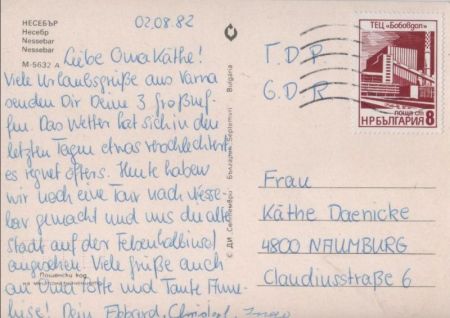 НЕСЕБЪР
Несебр
Nessebar
Nessebar
M-5632 A
02.08.82
Liebe Oma Käthe!
Viele Urlaubsgrüße aus Varna
senden Dir Deine 3 Großwuf-
fen. Das Wetter hat sich in den
letzten Tagen etwas verschlechtert
es regnet öfters. Heute haben
wir noch eine Tour nach Nesse-
bar gemacht und uns die alte
Stadt auf der Felsenhalbinsel
angesehen. Viele Grüße auch
an Oma Lotte und Tante Anne-
liese! Dein Ebhard, Christel,
Пощенски код
© ДИ „Септември" България Septemvri Bulgaria
ТЕЦ „Бобовдол"
поща ст
НРБЪЛГАРИЯ 8
G. D. R
G. D. R
Frau
Käthe Daenicke
4800 NAUMBURG
Claudiusstraße 6